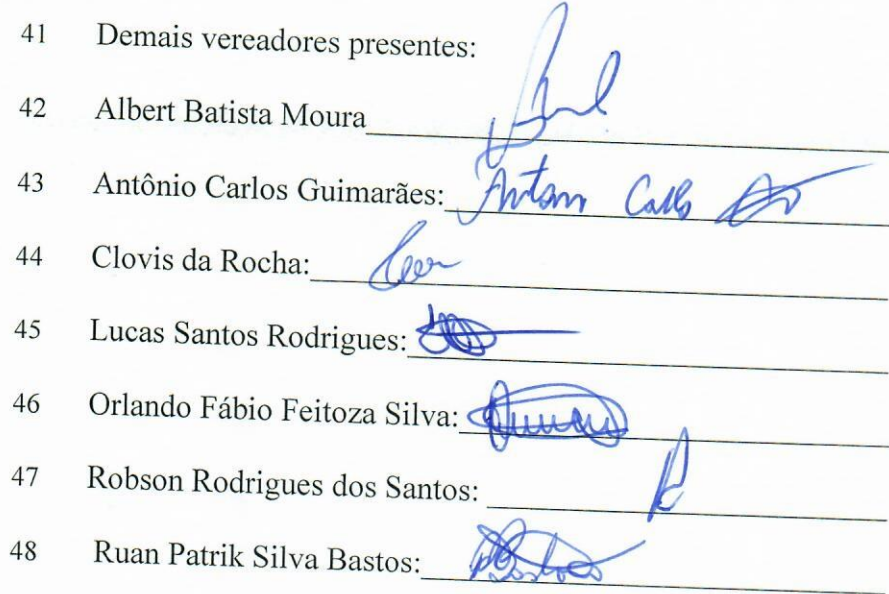 41 Demais vereadores presentes:
42 Albert Batista Moura
43 Antônio Carlos Guimarães: Antonio Carlos
44 Clovis da Rocha:
45 Lucas Santos Rodrigues:
46 Orlando Fábio Feitoza Silva:
47 Robson Rodrigues dos Santos:
48 Ruan Patrik Silva Bastos: